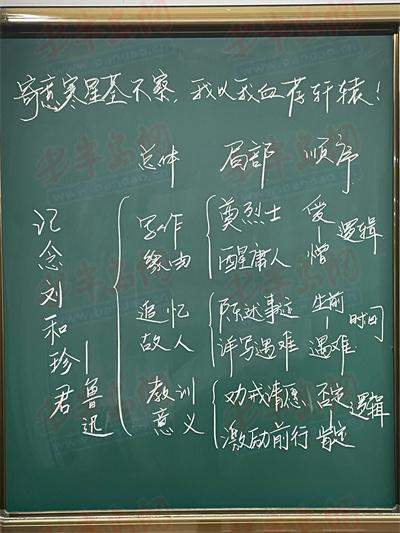 寄意寒星荃不察,我以我血荐轩辕!
总体 局部 顺序
记念刘和珍君
——鲁迅
写作缘由
奠烈士 爱
醒庸人 憎
逻辑
追忆故人
陈述事迹 生前
详写遇难 遇难
时间
教训意义
劝戒请愿 否定
激励前行 肯定
逻辑
半岛网
www.bandao.cn